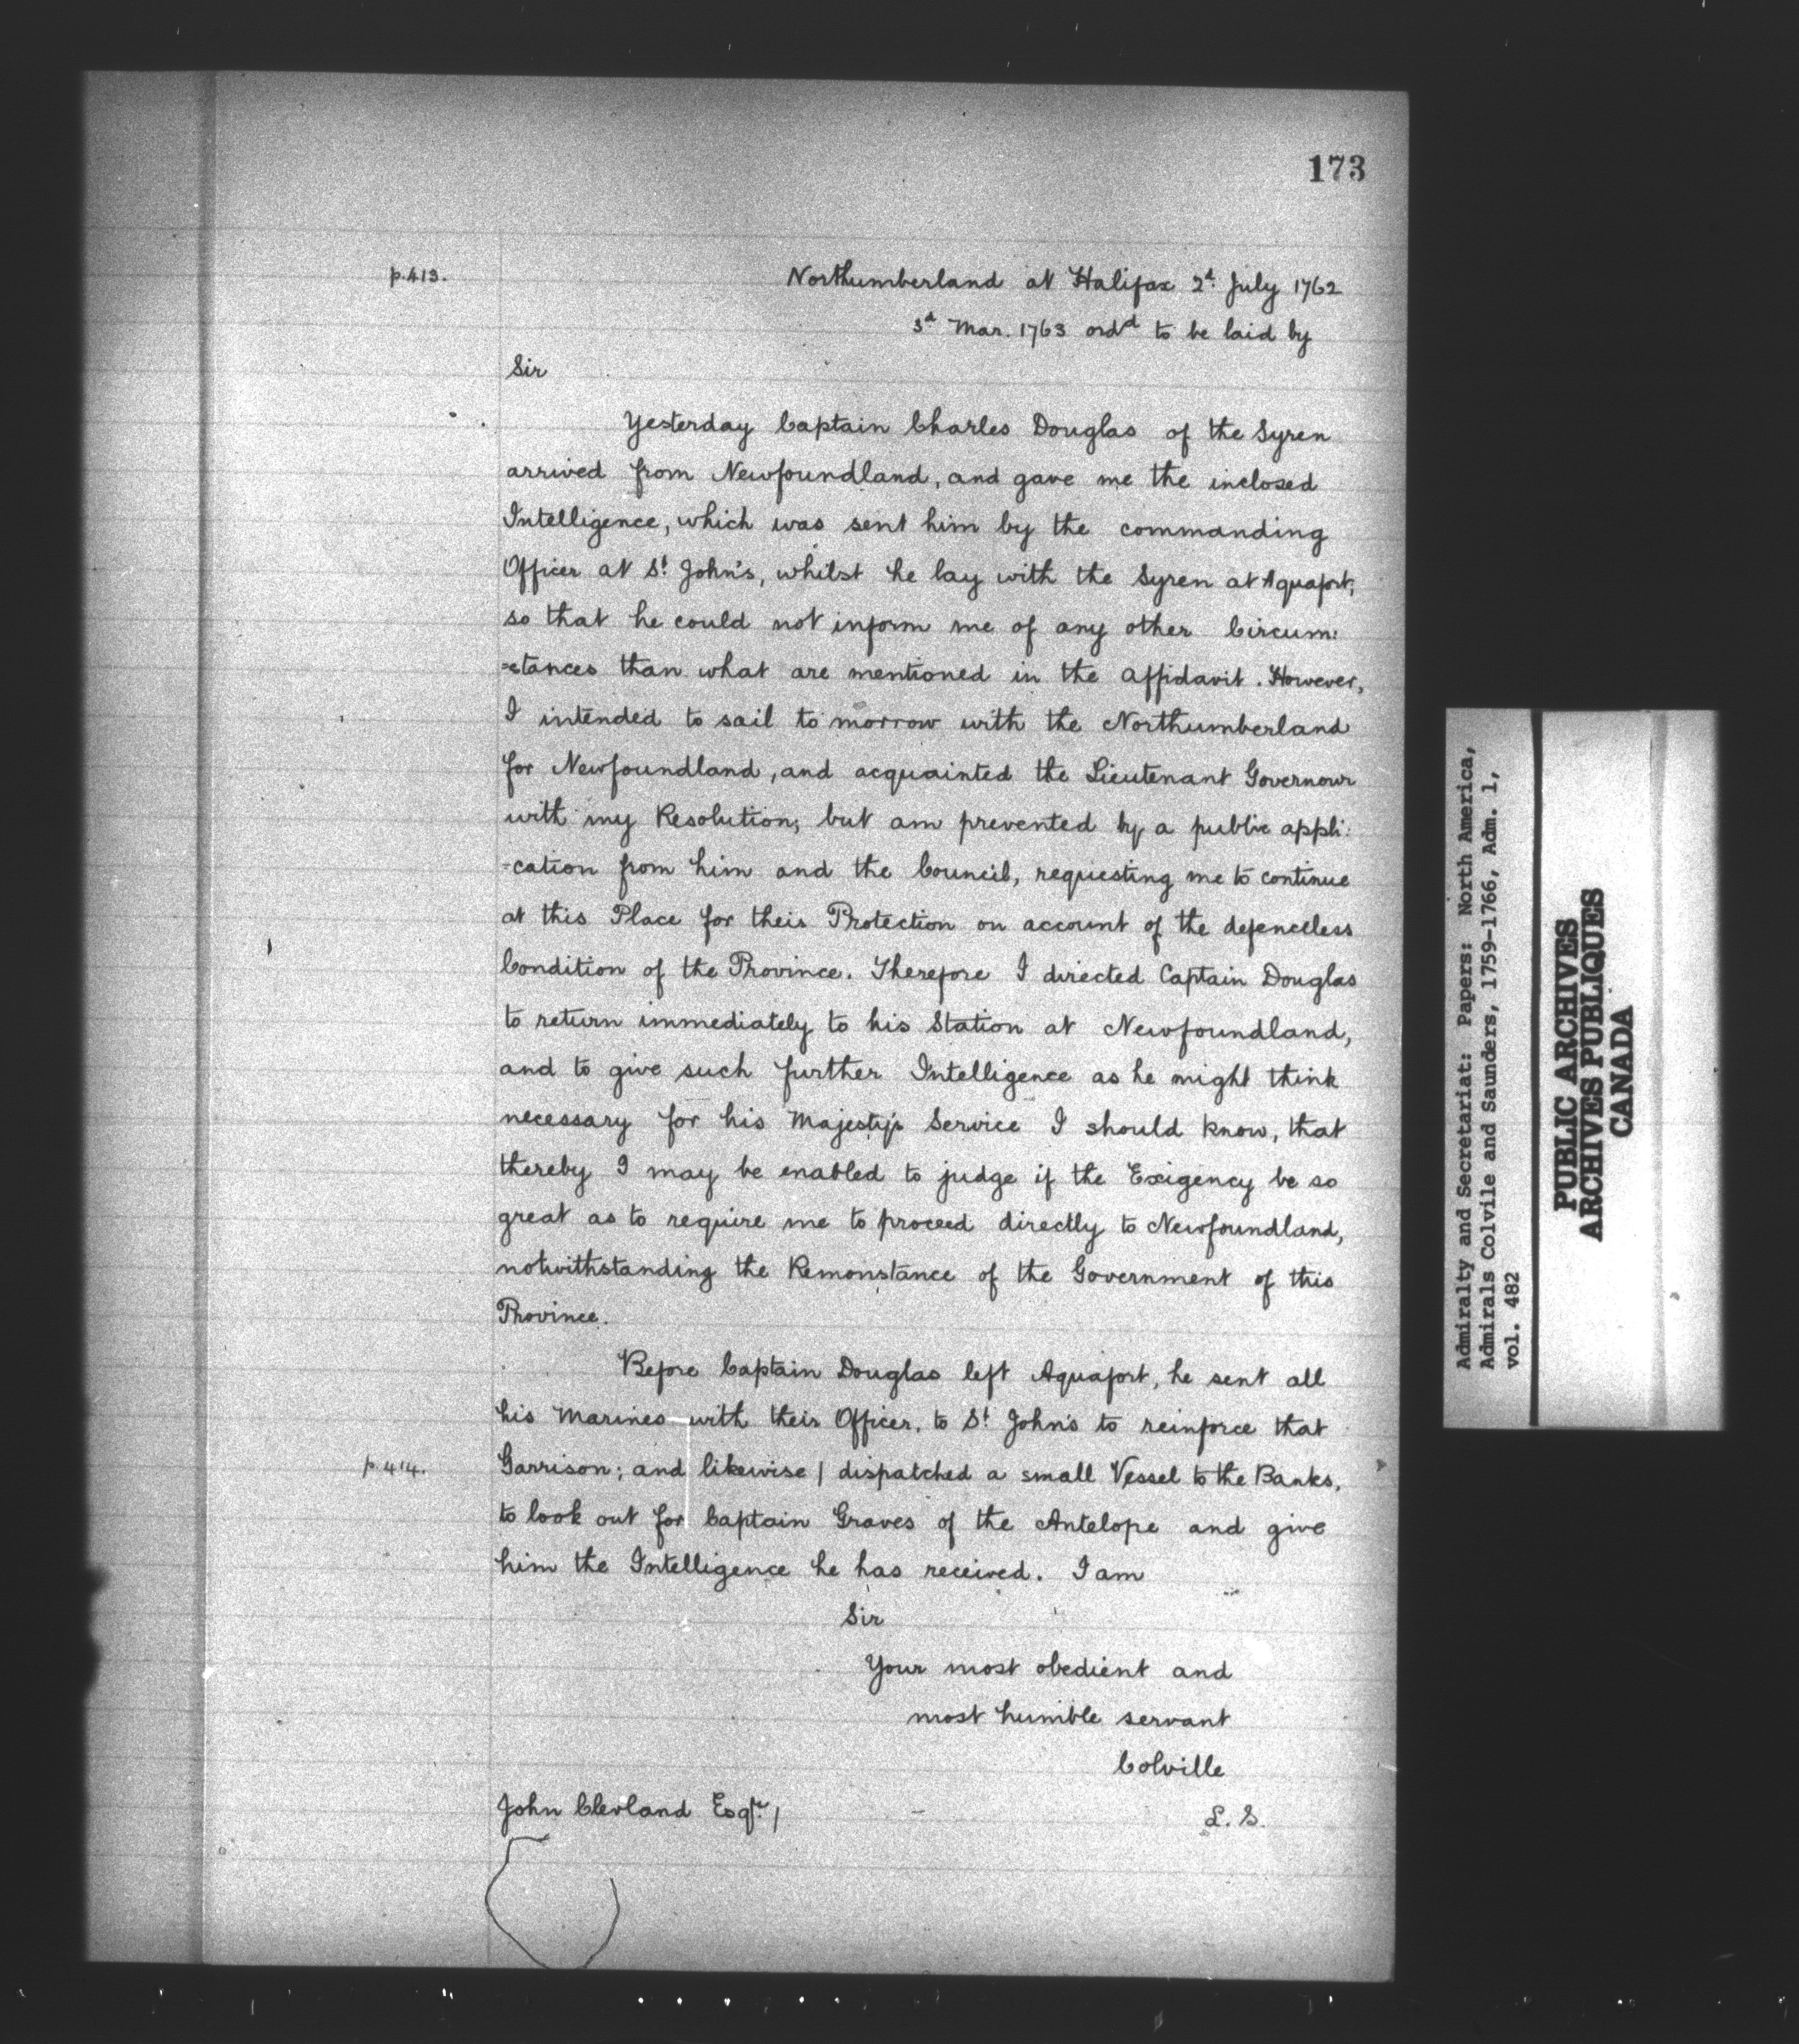 173
p.413.
Northumberland at Halifax 2d. July 1762
3d Mar. 1763 ordd to be laid by
Sir
Yesterday Captain Charles Douglas of the Syren
arrived from Newfoundland, and gave me the inclosed
Intelligence, which was sent him by the commanding
Officer at St. John's, whilst he lay with the Syren at Aquafort;
so that he could not inform me of any other Circum:
=stances than what are mentioned in the affidavit. However,
I intended to sail to morrow with the Northumberland
for Newfoundland, and acquainted the Lieutenant Governour
with my Resolution; but am prevented by a public appli:
=cation from him and the Council, requesting me to continue
at this Place for their Protection on account of the defenceless
Condition of the Province. Therefore I directed Captain Douglas
to return immediately to his Station at Newfoundland,
and to give such further Intelligence as he might think
necessary for his Majesty's Service I should know, that
thereby I may be enabled to judge if the Exigency be so
great as to require me to proceed directly to Newfoundland,
notwithstanding the Remonstance of the Government of this
Province.
Before Captain Douglas left Aquafort, he sent all
his Marines with their Officer, to St. John's to reinforce that
p.414.
Garrison; and likewise / dispatched a small Vessel to the Banks,
to look out for Captain Graves of the Antelope and give
him the Intelligence he has received. I am
Sir
Your most obedient and
most humble servant
Colville
John Clevland Esqr. /
L. S.
Admiralty and Secretariat: Papers: North America,
Admirals Colvile and Saunders, 1759-1766, Adm. 1,
vol. 482
PUBLIC ARCHIVES
ARCHIVES PUBLIQUES
CANADA